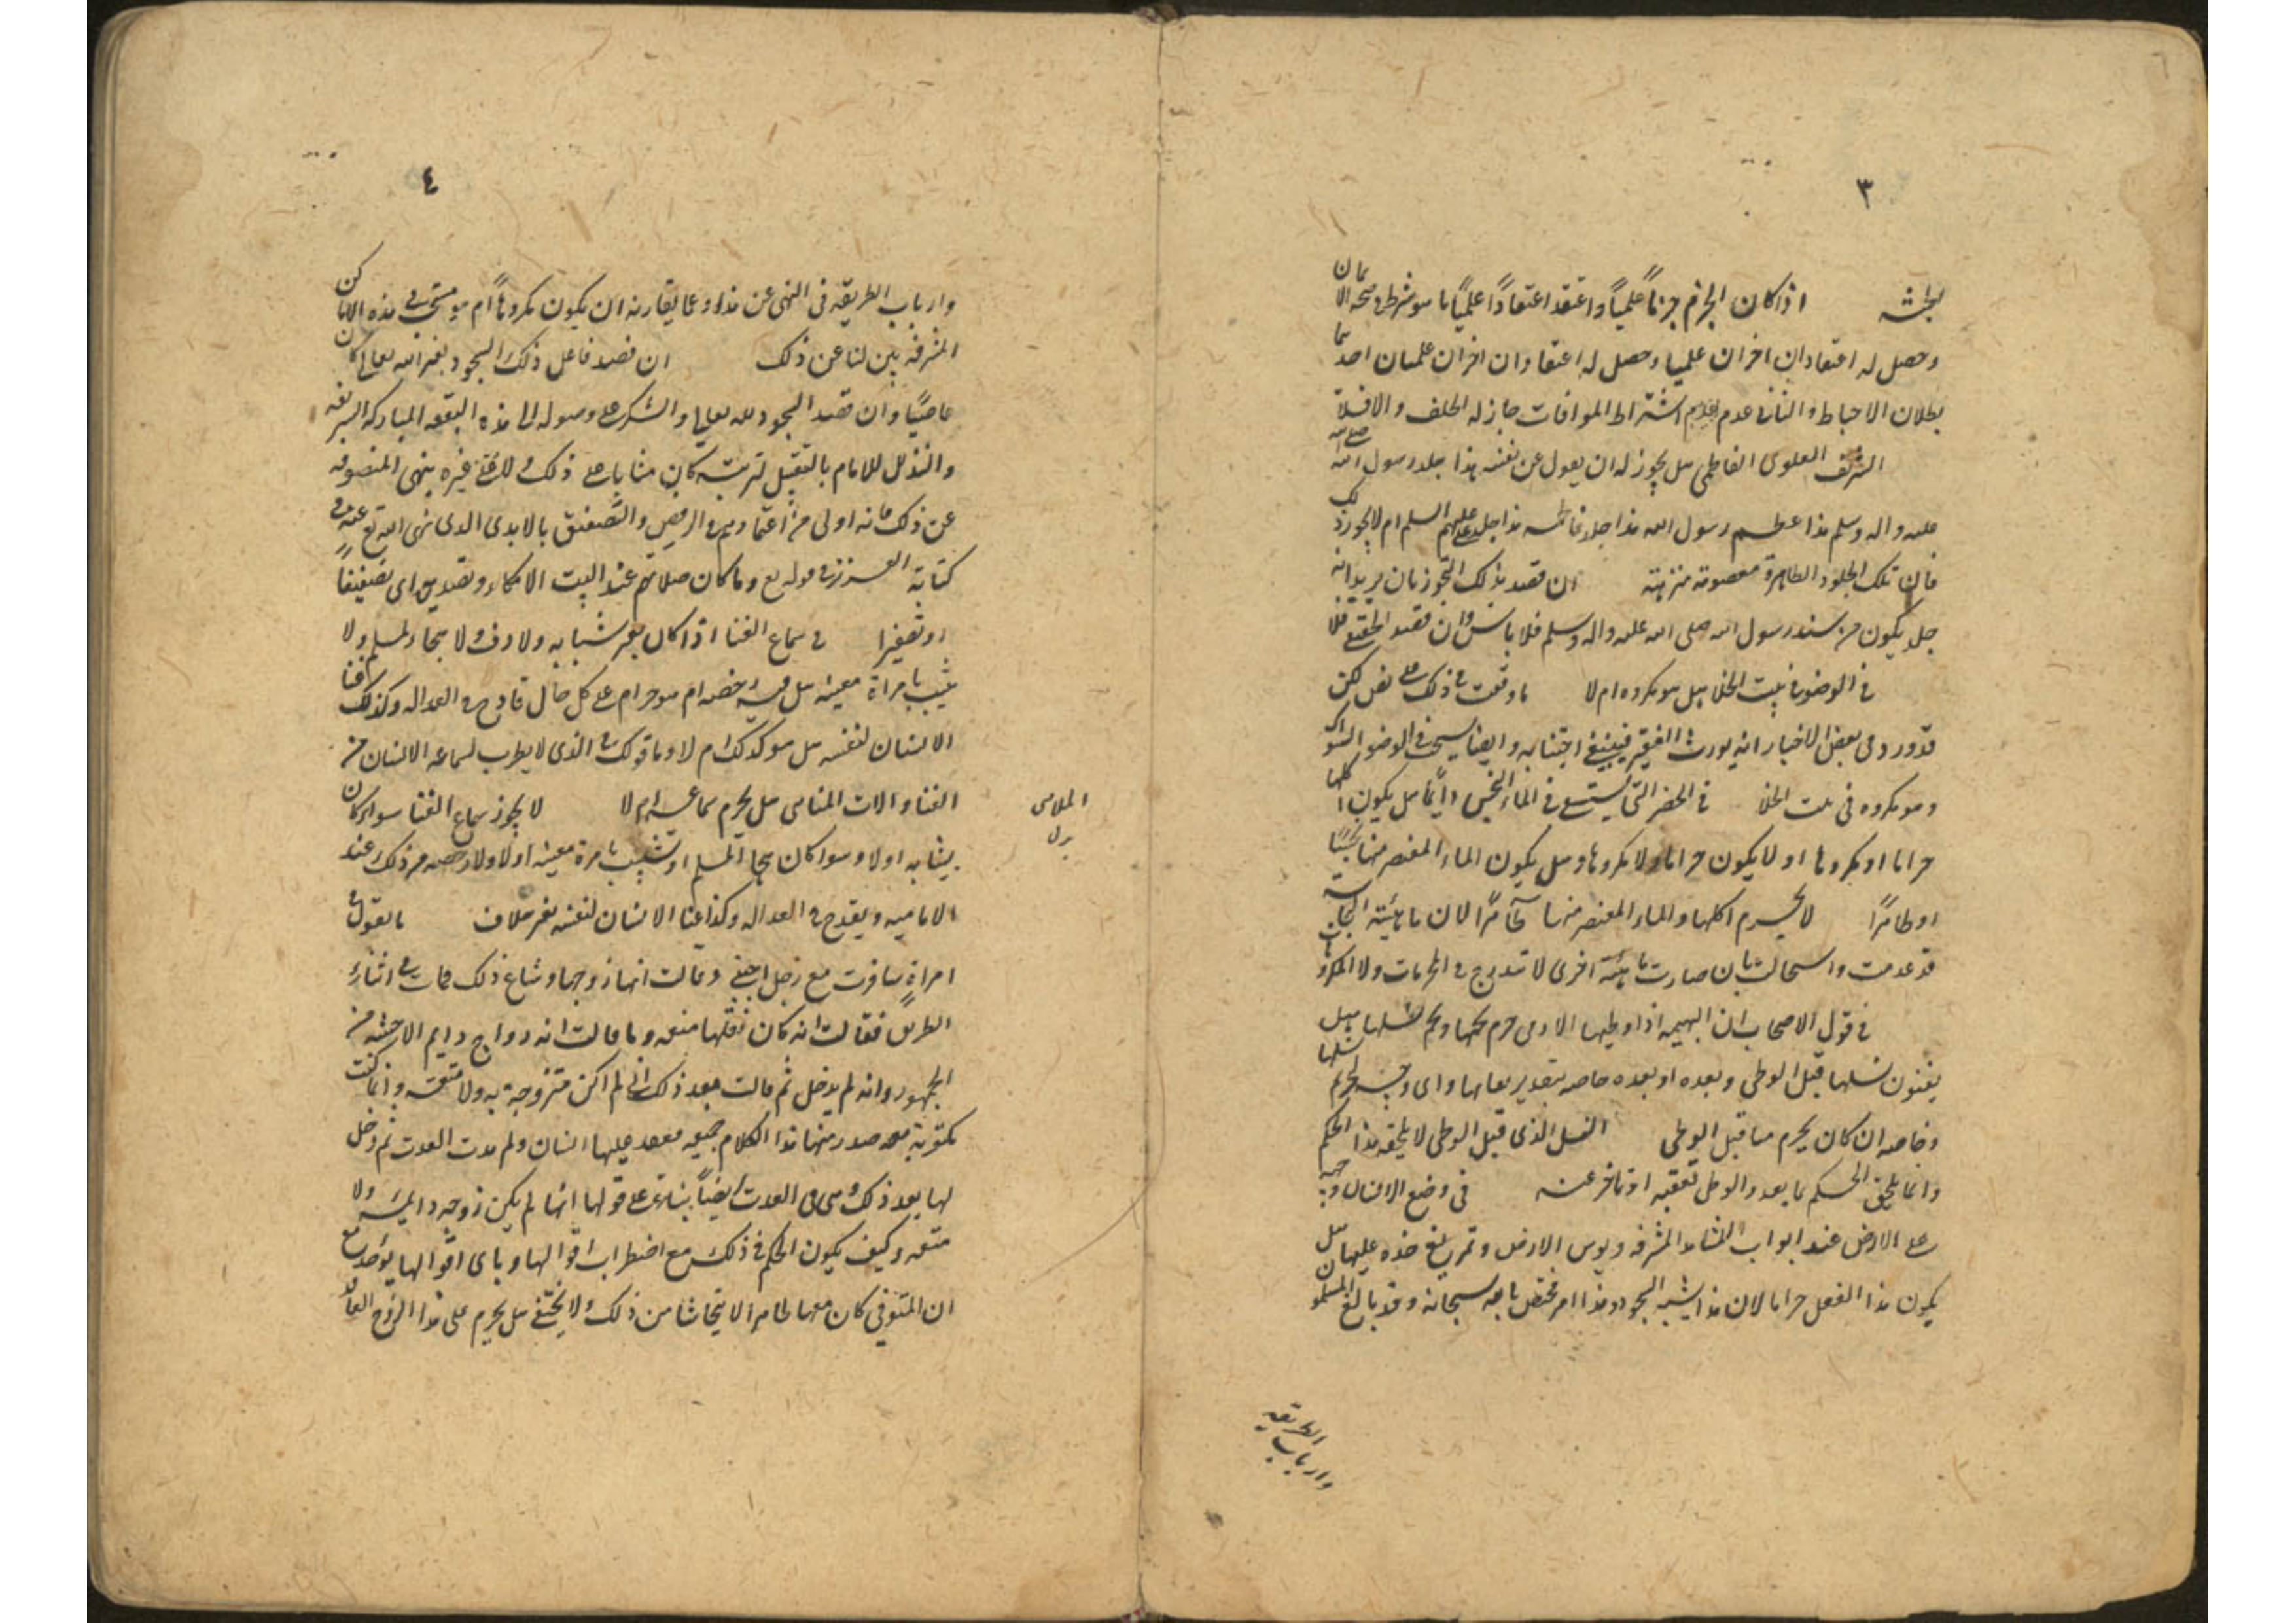 ٣
لجثه اذا كان الجزم جزماً علمياً واعتقد اعتقاداً علمياً ما هو شرط فى صحة الايمان
وحصل له اعتقادان اخران علميا وحصل له اعتقادان اخران علميان احدهما
بطلان الاحباط والثانى عدم اشتراط الموافات جاز له الحلف والا فلا
الشريف العلوى الفاطمى هل يجوز له ان يقول عن نفسه هذا جلد رسول الله صلى الله
عليه واله وسلم هذا عظم رسول الله هذا جلد فاطمه هذا جلد على عليهم السلم ام لا يجوز ذلك
فان تلك الجلود الطاهرة معصومة منزهة ان قصد بذلك التجوز بان يريد انه
جلد يكون من سند رسول الله صلى الله عليه واله وسلم فلا باس وان قصد الحقيقى فلا
فى الوضوء فى بيت الخلا هل هو مكروه ام لا ما وقفت فى ذلك على نص لكن
قد ورد فى بعض الاخبار انه يورث الفقر فينبغى اجتنابه وايضا يستحب فى الوضوء السواك
وهو مكروه فى بيت الخلا فى الخضر التى تسقى فى الماء النجس دايماً هل يكون اكلها
حراما او مكروها او لا يكون حراما ولا مكروها وهل يكون الماء المعتصر منها نجسًا
او طاهرًا لا يحرم اكلها والماء المعتصر منها طاهرًا لان ماهيته النجاسه
قد عدمت واستحالت بان صارت ماهيته اخرى لا تندرج فى المحرمات ولا المكروهات
فى قول الاصحاب ان البهيمه اذا وطيها الادمى حرم لحمها ولحم نسلها هل
يعنون نسلها قبل الوطى وبعده او بعده خاصه بتقدير بقائها واى وجه لتحريم نسلها
وخاصه ان كان يحرم ما قبل الوطى النسل الذى قبل الوطى لا يلحقه هذا الحكم
وانما يلحق الحكم بما بعد والوطى تعقبه او تاخر عنه فى وضع الانسان وجهه
على الارض عند ابواب المشاهد المشرفه وبوس الارض وتمريغ خده عليها هل
يكون هذا الفعل حراما لان هذا يشبه السجود وهذا امر مختص بالله سبحانه وقد بالغ المسلمون
وارباب الطريقه
٤
وارباب الطريقه فى النهى عن هذا وعما يقاربه ان يكون مكروهاً ام هو مستحب فى هذه الاماكن
المشرفه بين لنا عن ذلك ان قصد فاعل ذلك السجود لغير الله تعالى كان
عاصيًا وان قصد السجود لله تعالى والشكر على وصوله الى هذه البقعه المباركه الشريفه
والتذلل للامام بالتقبيل لتربته كان مثابا على ذلك ولا يلتفت غيره ينهى المتصوفه
عن ذلك فانه اولى من اعتمادهم فى الرقص والتصفيق بالايدى الذى نهى الله تع عنه فى
كتابه العزيز فى قوله تع وما كان صلاتهم عند البيت الا مكاء وتصديه اى تصفيقاً
او تصفيرا فى سماع الغنا اذا كان بغير شبابه ولا دف ولا هجاء لمسلم ولا
تشبيب بامراة معينه هل فيه رخصه ام هو حرام على كل حال قادح فى العداله وكذلك غنا
الانسان لنفسه هل هو كذلك ام لا وما قولك فى الذى لا يطرب لسماعه الانسان من
الغنا والات المناهى هل يحرم سماعه ام لا لا يجوز سماع الغنا سوا كان
بشبابه او لا وسوا كان هجا المسلم او تشبيب بامرة معينه او لا ولا رخصه من ذلك عند
الاماميه ويقدح فى العداله وكذا غنا الانسان لنفسه بغير خلاف ما يقول فى
امراةٍ سافرت مع رجل اجنبى وقالت انها زوجها وشاع ذلك فمات فى اثناء
الطريق فقالت انه كان نقلها متعه وما قالت انه زواج دايم الا خشيه من
الجمهور وانه لم يدخل ثم قالت بعد ذلك انى لم اكن متزوجة به ولا متعته وانما كنت
مكتوبة معه صدر منها هذا الكلام جميعه فعقد عليها انسان ولم عدت العدت ثم دخل
لها بعد ذلك وهى فى العدت ايضاً بنائه على قولها انها لم يكن زوجه دايمه ولا
متعه وكيف يكون الحكم فى ذلك مع اضطراب اقوالها وباى اقوالها يوخذ مع
ان المتوفى كان معها ظاهرا لا يتحاشا من ذلك ولا يختفى هل يحرم على هذا الزوج العاقد
الملاهى
بدل